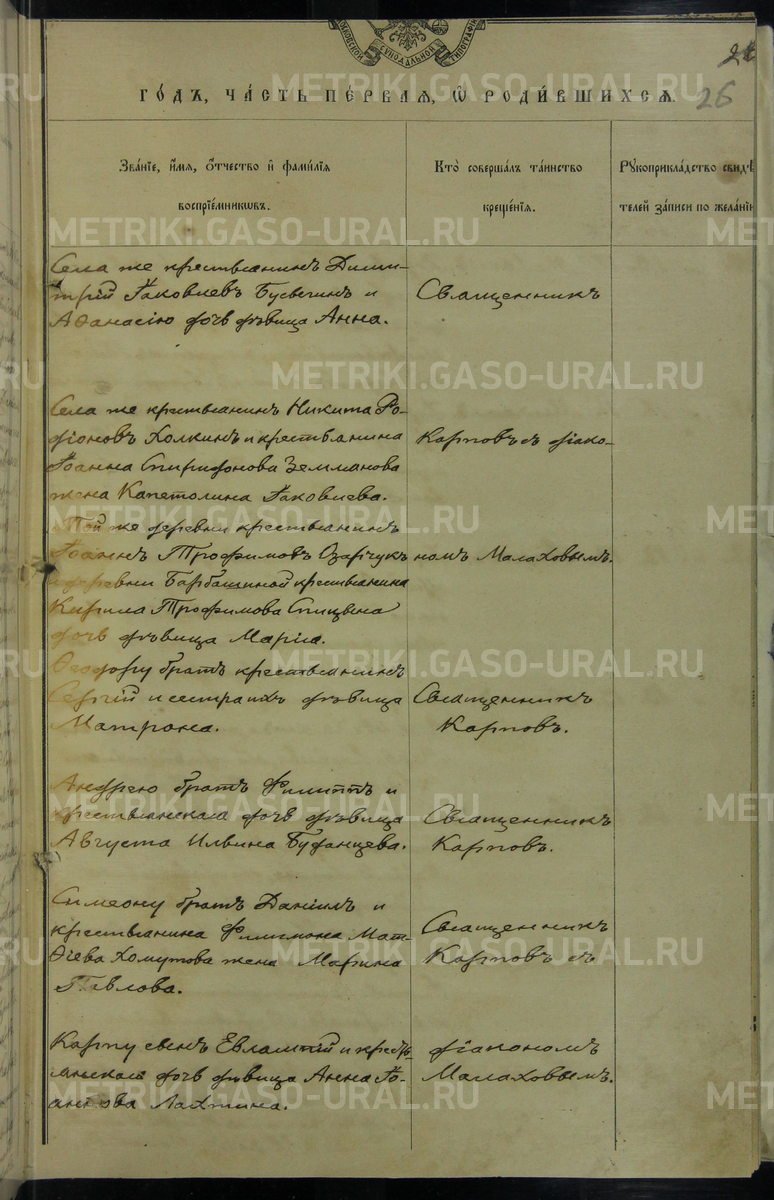 МОСКОВСКОЙ СѴНОДАЛЬНОЙ ТИПОГРАФІИ
26
ГО́ДЪ, ЧА́СТЬ ПЕ́РВАЯ, Ѡ҆ РОДИ́ВШИХСЯ.
Зва́нїе, и҆́мя, ѻ҆́тчество и҆ фами́лїя воспрїе́мникѡвъ.
Кто̀ соверша́лъ та́инство креще́нїя.
Рꙋкоприкла́дство свидѣ́телей за́писи по жела́нїю
Села же крестьянинъ Дими-
трій Іаковлевъ Бусыгинъ и
Аѳанасію дочь дѣвица Анна.
Священникъ
Села же крестьянинъ Никита Ро-
діоновъ Холкинъ и крестьянина
Іоанна Спиридонова Земланова
жена Капетолина Іаковлева.
Карповъ съ діако-
Той же деревни крестьянинъ
Іоаннъ Трофимовъ
и деревни Барбашиной крестьянина
Кирила Трофимова Спицына
дочь дѣвица Марія.
номъ Малаховымъ.
Ѳеодору братъ крестьянинъ
Сергій и сестра ихъ дѣвица
Матрона.
Священникъ
Карповъ.
Андрею братъ Филиппъ и
крестьянская дочь дѣвица
Августа Ильина Буданцева.
Священникъ
Карповъ.
Симеону братъ Даніилъ и
крестьянина Филимона Мат-
ѳіева Хомутова жена Марина
Павлова.
Священникъ
Карповъ съ
Карпу сынъ Евлампій и кресть-
янская дочь дѣвица Анна Іо-
аннова Лахтина.
діакономъ
Малаховымъ.
METRIKI.GASO-URAL.RU